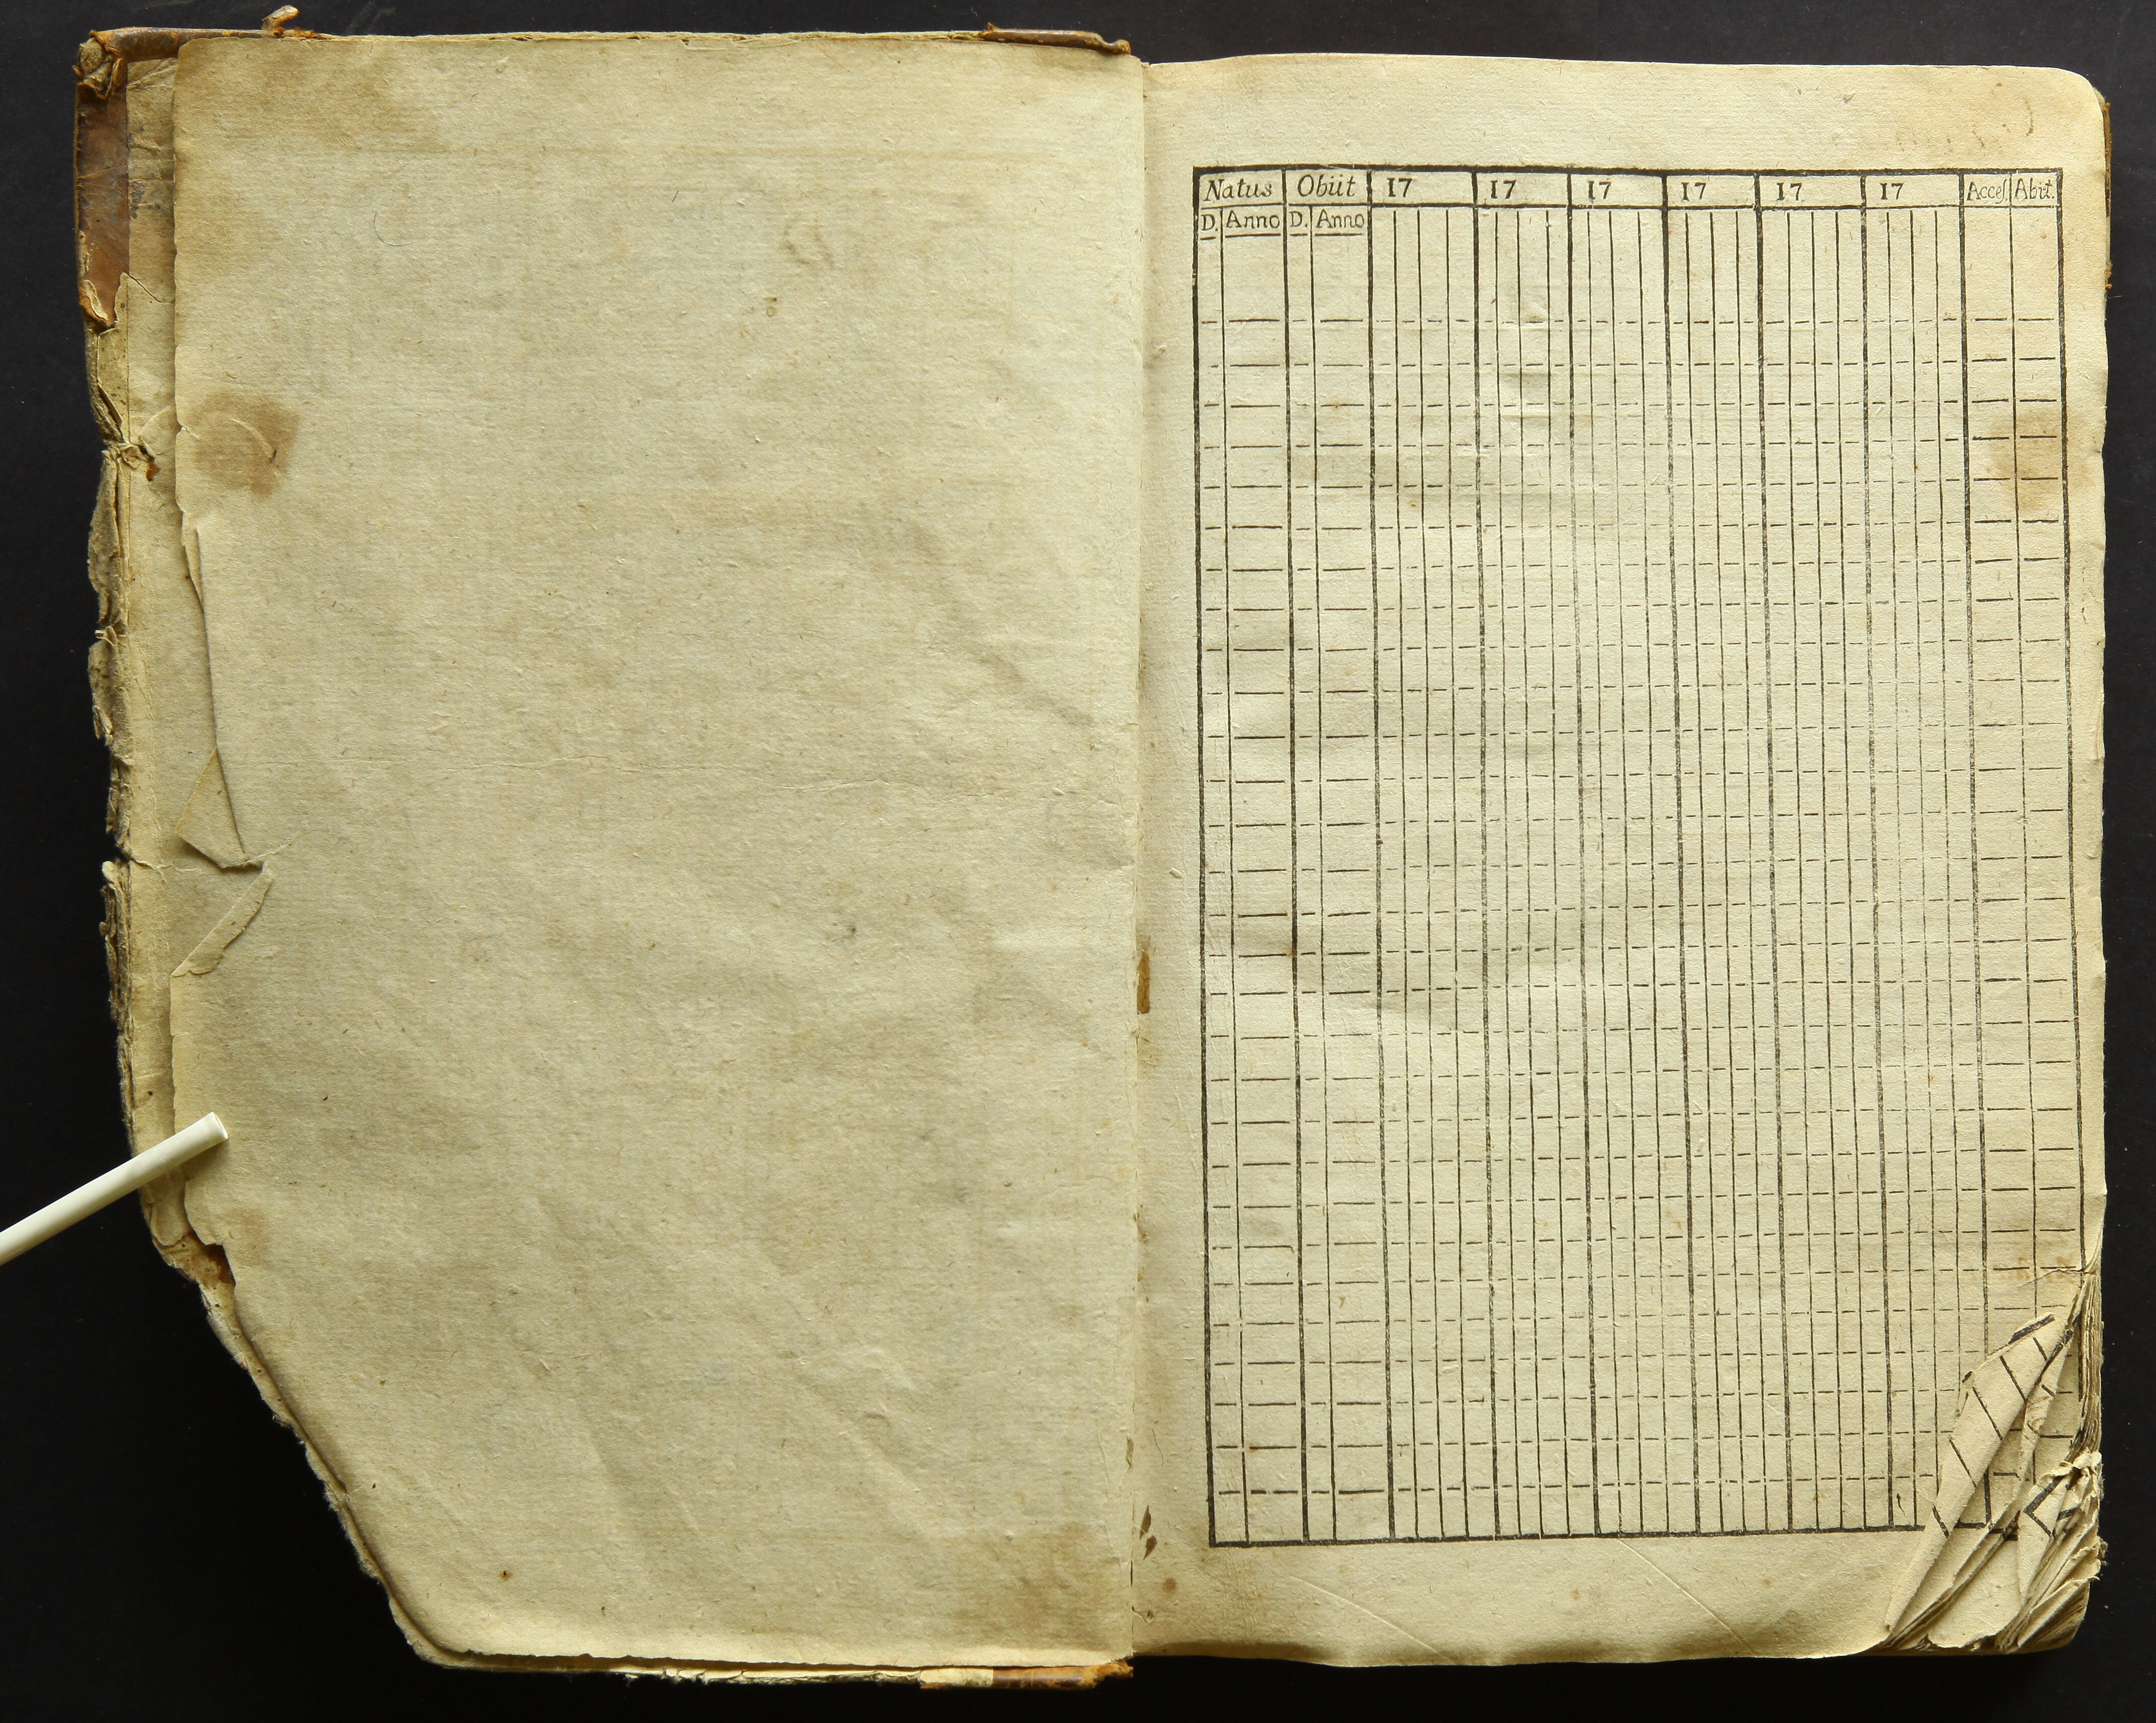 Natus Obiit 17 17 17 17 17 17 Acces Abit.
D. Anno D. Anno